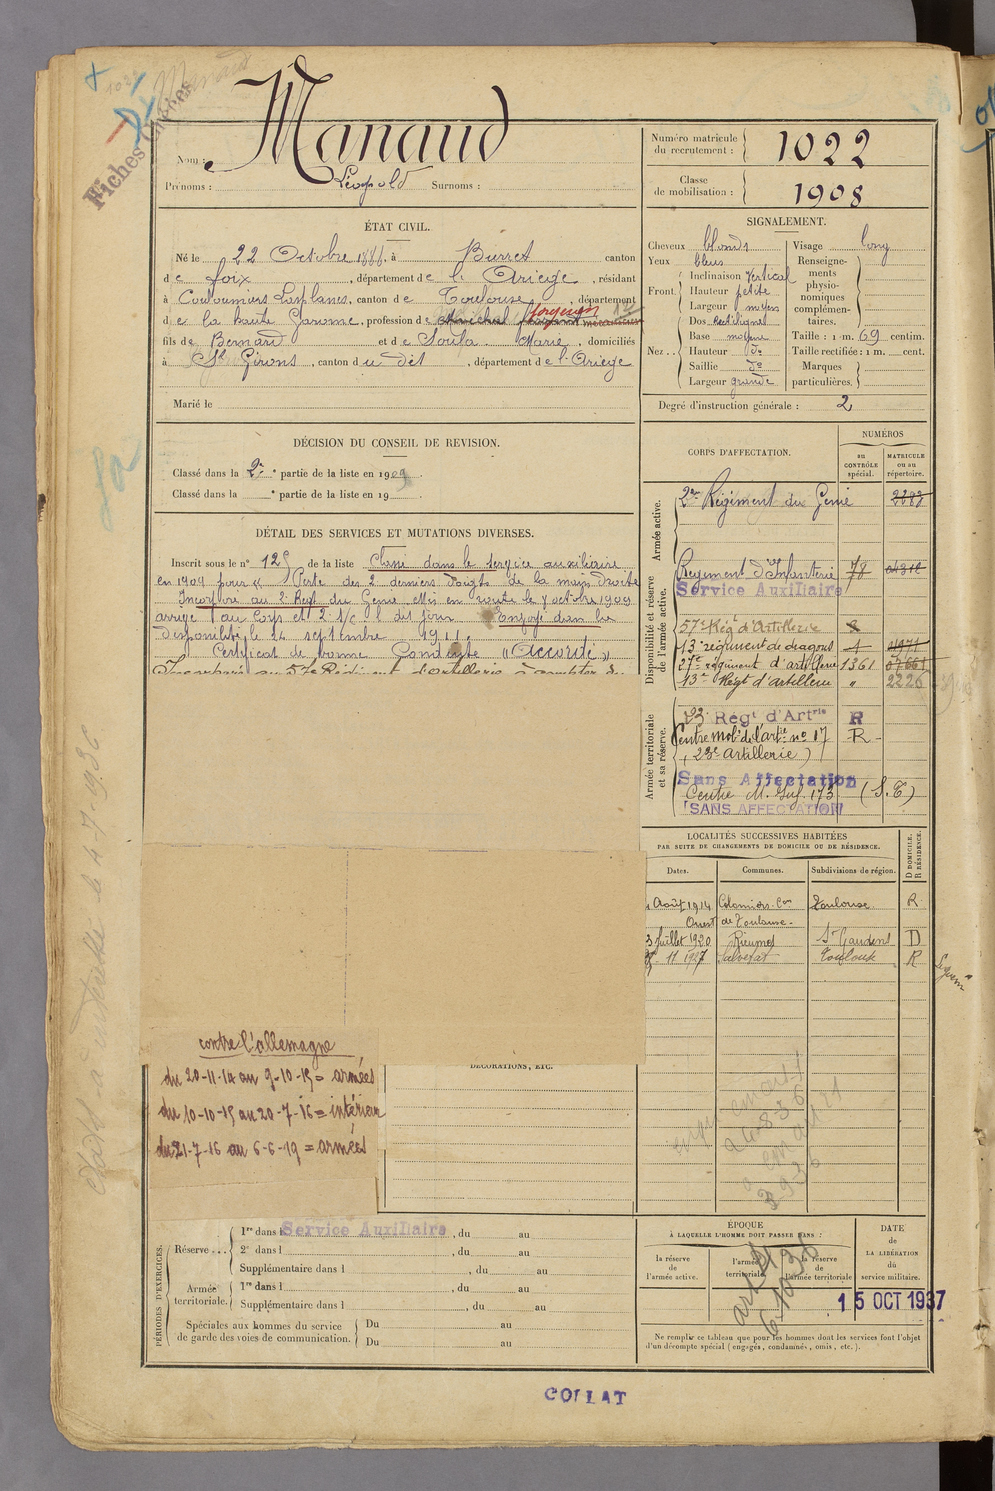 Manaud
Fiches
Nom : Manaud
Prénoms : Léopold Surnoms :
Numéro matricule du recrutement : 1022
Classe de mobilisation : 1908
ÉTAT CIVIL.
Né le 22 Octobre 1888, à Burret canton
de foix, département de l'Ariège, résidant
à Couloumiers Lasplanes, canton de Toulouse, département
de la haute Garonne, profession de Maréchal forgeron
fils de Bernard et de Soula Marie, domiciliés
à St Girons, canton du dit, département de l'Ariège
Marié le
SIGNALEMENT.
Cheveux blonds
Yeux bleus
Front : Inclinaison Vertical
Hauteur petite
Largeur moyen
Nez : Dos Rectiligne
Base moyenne
Hauteur do
Saillie do
Largeur grande
Visage long
Renseignements physionomiques complémentaires.
Taille : 1 m. 69 centim.
Taille rectifiée : 1 m. cent.
Marques particulières.
Degré d'instruction générale : 2
DÉCISION DU CONSEIL DE REVISION.
Classé dans la 2e partie de la liste en 1909.
Classé dans la e partie de la liste en 19 .
DÉTAIL DES SERVICES ET MUTATIONS DIVERSES.
Inscrit sous le n° 125 de la liste Classé dans le service auxiliaire
en 1909 pour "Perte des 2 derniers doigts de la main droite
Incorporé au 2e Regt du Génie. Mis en route le 7 octobre 1909
arrivé au Corps et 2e s/c l dit jour. Envoyé dans la
disponibilité le 24 septembre 1911.
Certificat de bonne Conduite "Accordé"
CORPS D'AFFECTATION.
NUMÉROS
au CONTRÔLE spécial.
MATRICULE ou au répertoire.
Armée active.
2me Régiment du Génie
Disponibilité et réserve de l'armée active.
Régiment d'Infanterie 78
Service Auxiliaire
57e Régt d'Artillerie
13e régiment de dragons
27me régiment d'artillerie 1361
13e Régt d'artillerie " 2226
Armée territoriale et sa réserve.
23 Régt d'Artrie R
Centre mobr de l'artie no 17 R
(23e artillerie)
Sans Affectation
Centre M. Inf. 173 (S.T)
SANS AFFECTATION
LOCALITÉS SUCCESSIVES HABITÉES
PAR SUITE DE CHANGEMENTS DE DOMICILE OU DE RÉSIDENCE.
Dates. Communes. Subdivisions de région. D DOMICILE. R RÉSIDENCE.
Août 1914 Colomiers Con Toulouse R
Ouest de Toulouse
3 Juillet 1920 Rieumes St Gaudens D
11 1927 Salvetat Toulouse R
contre l'allemagne
du 20-11-14 au 9-10-15 = armées
du 10-10-15 au 20-7-16 = intérieur
du 21-7-16 au 6-6-19 = armées
DÉCORATIONS, ETC.
PÉRIODES D'EXERCICES.
Réserve... 1re dans l Service Auxiliaire, du au
2e dans l , du au
Supplémentaire dans l , du au
Armée territoriale. 1re dans l , du au
Supplémentaire dans l , du au
Spéciales aux hommes du service de garde des voies de communication. Du au
Du au
ÉPOQUE
À LAQUELLE L'HOMME DOIT PASSER DANS :
la réserve de l'armée active.
l'armée territoriale.
la réserve de l'armée territoriale
DATE de LA LIBÉRATION du service militaire.
15 OCT 1937
Ne remplir ce tableau que pour les hommes dont les services font l'objet
d'un décompte spécial (engagés, condamnés, omis, etc.).
COLLAT